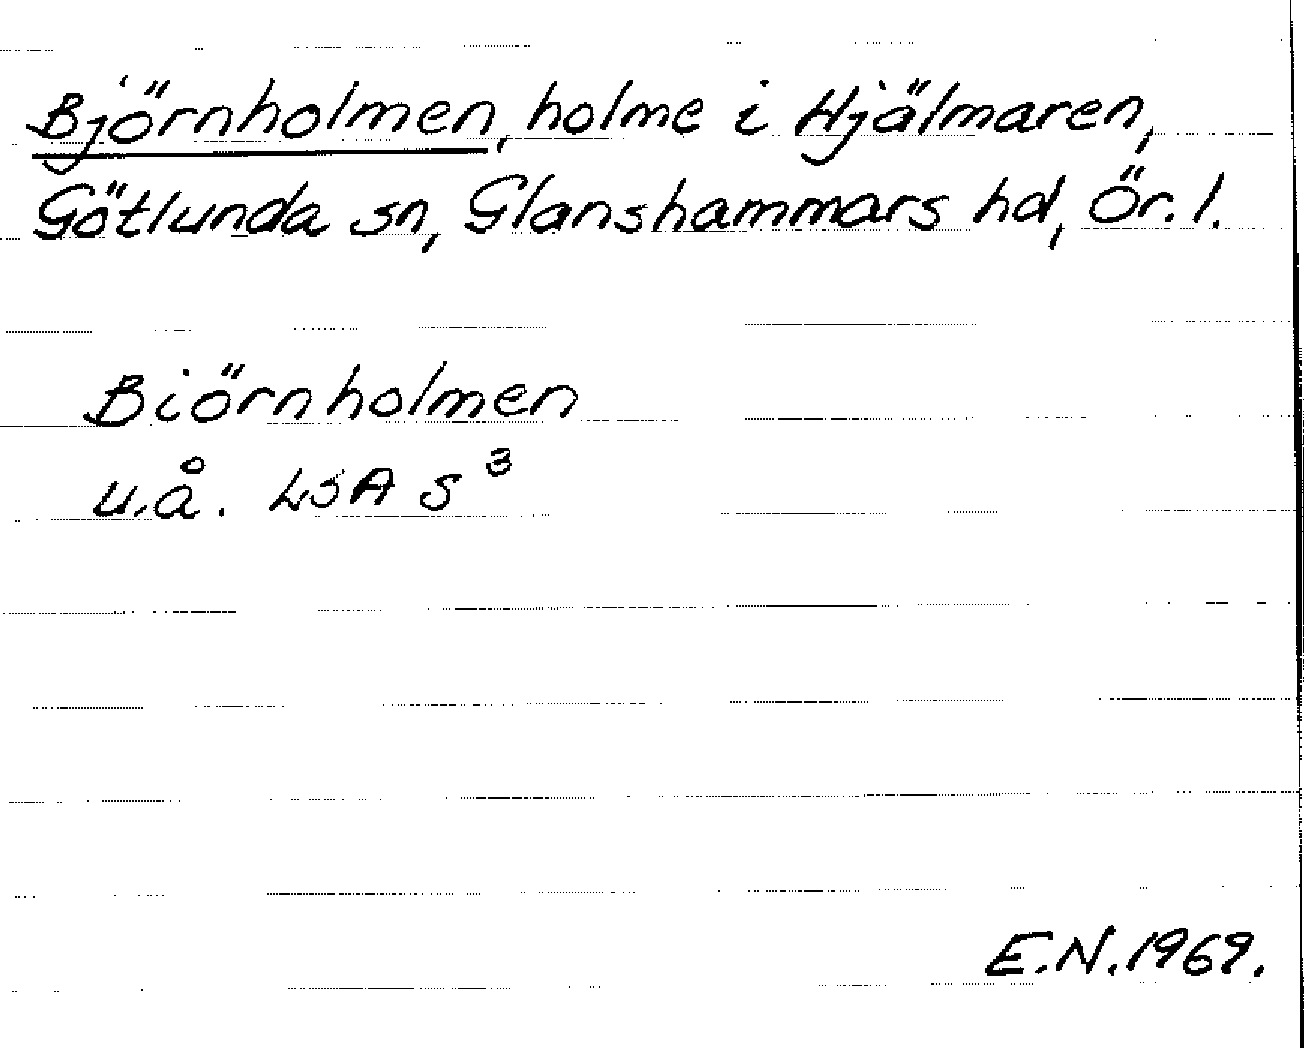 Björnholmen, holme i Hjälmaren,
Götlunda sn, Glanshammars hd, Ör. l.
Biörnholmen
u.å. LSA S³
E.N. 1969.